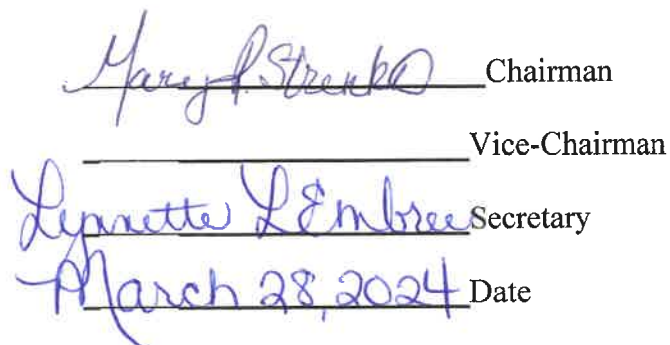 Mary P. Strenka Chairman
Vice-Chairman
Lynnette L Embree Secretary
March 28, 2024 Date